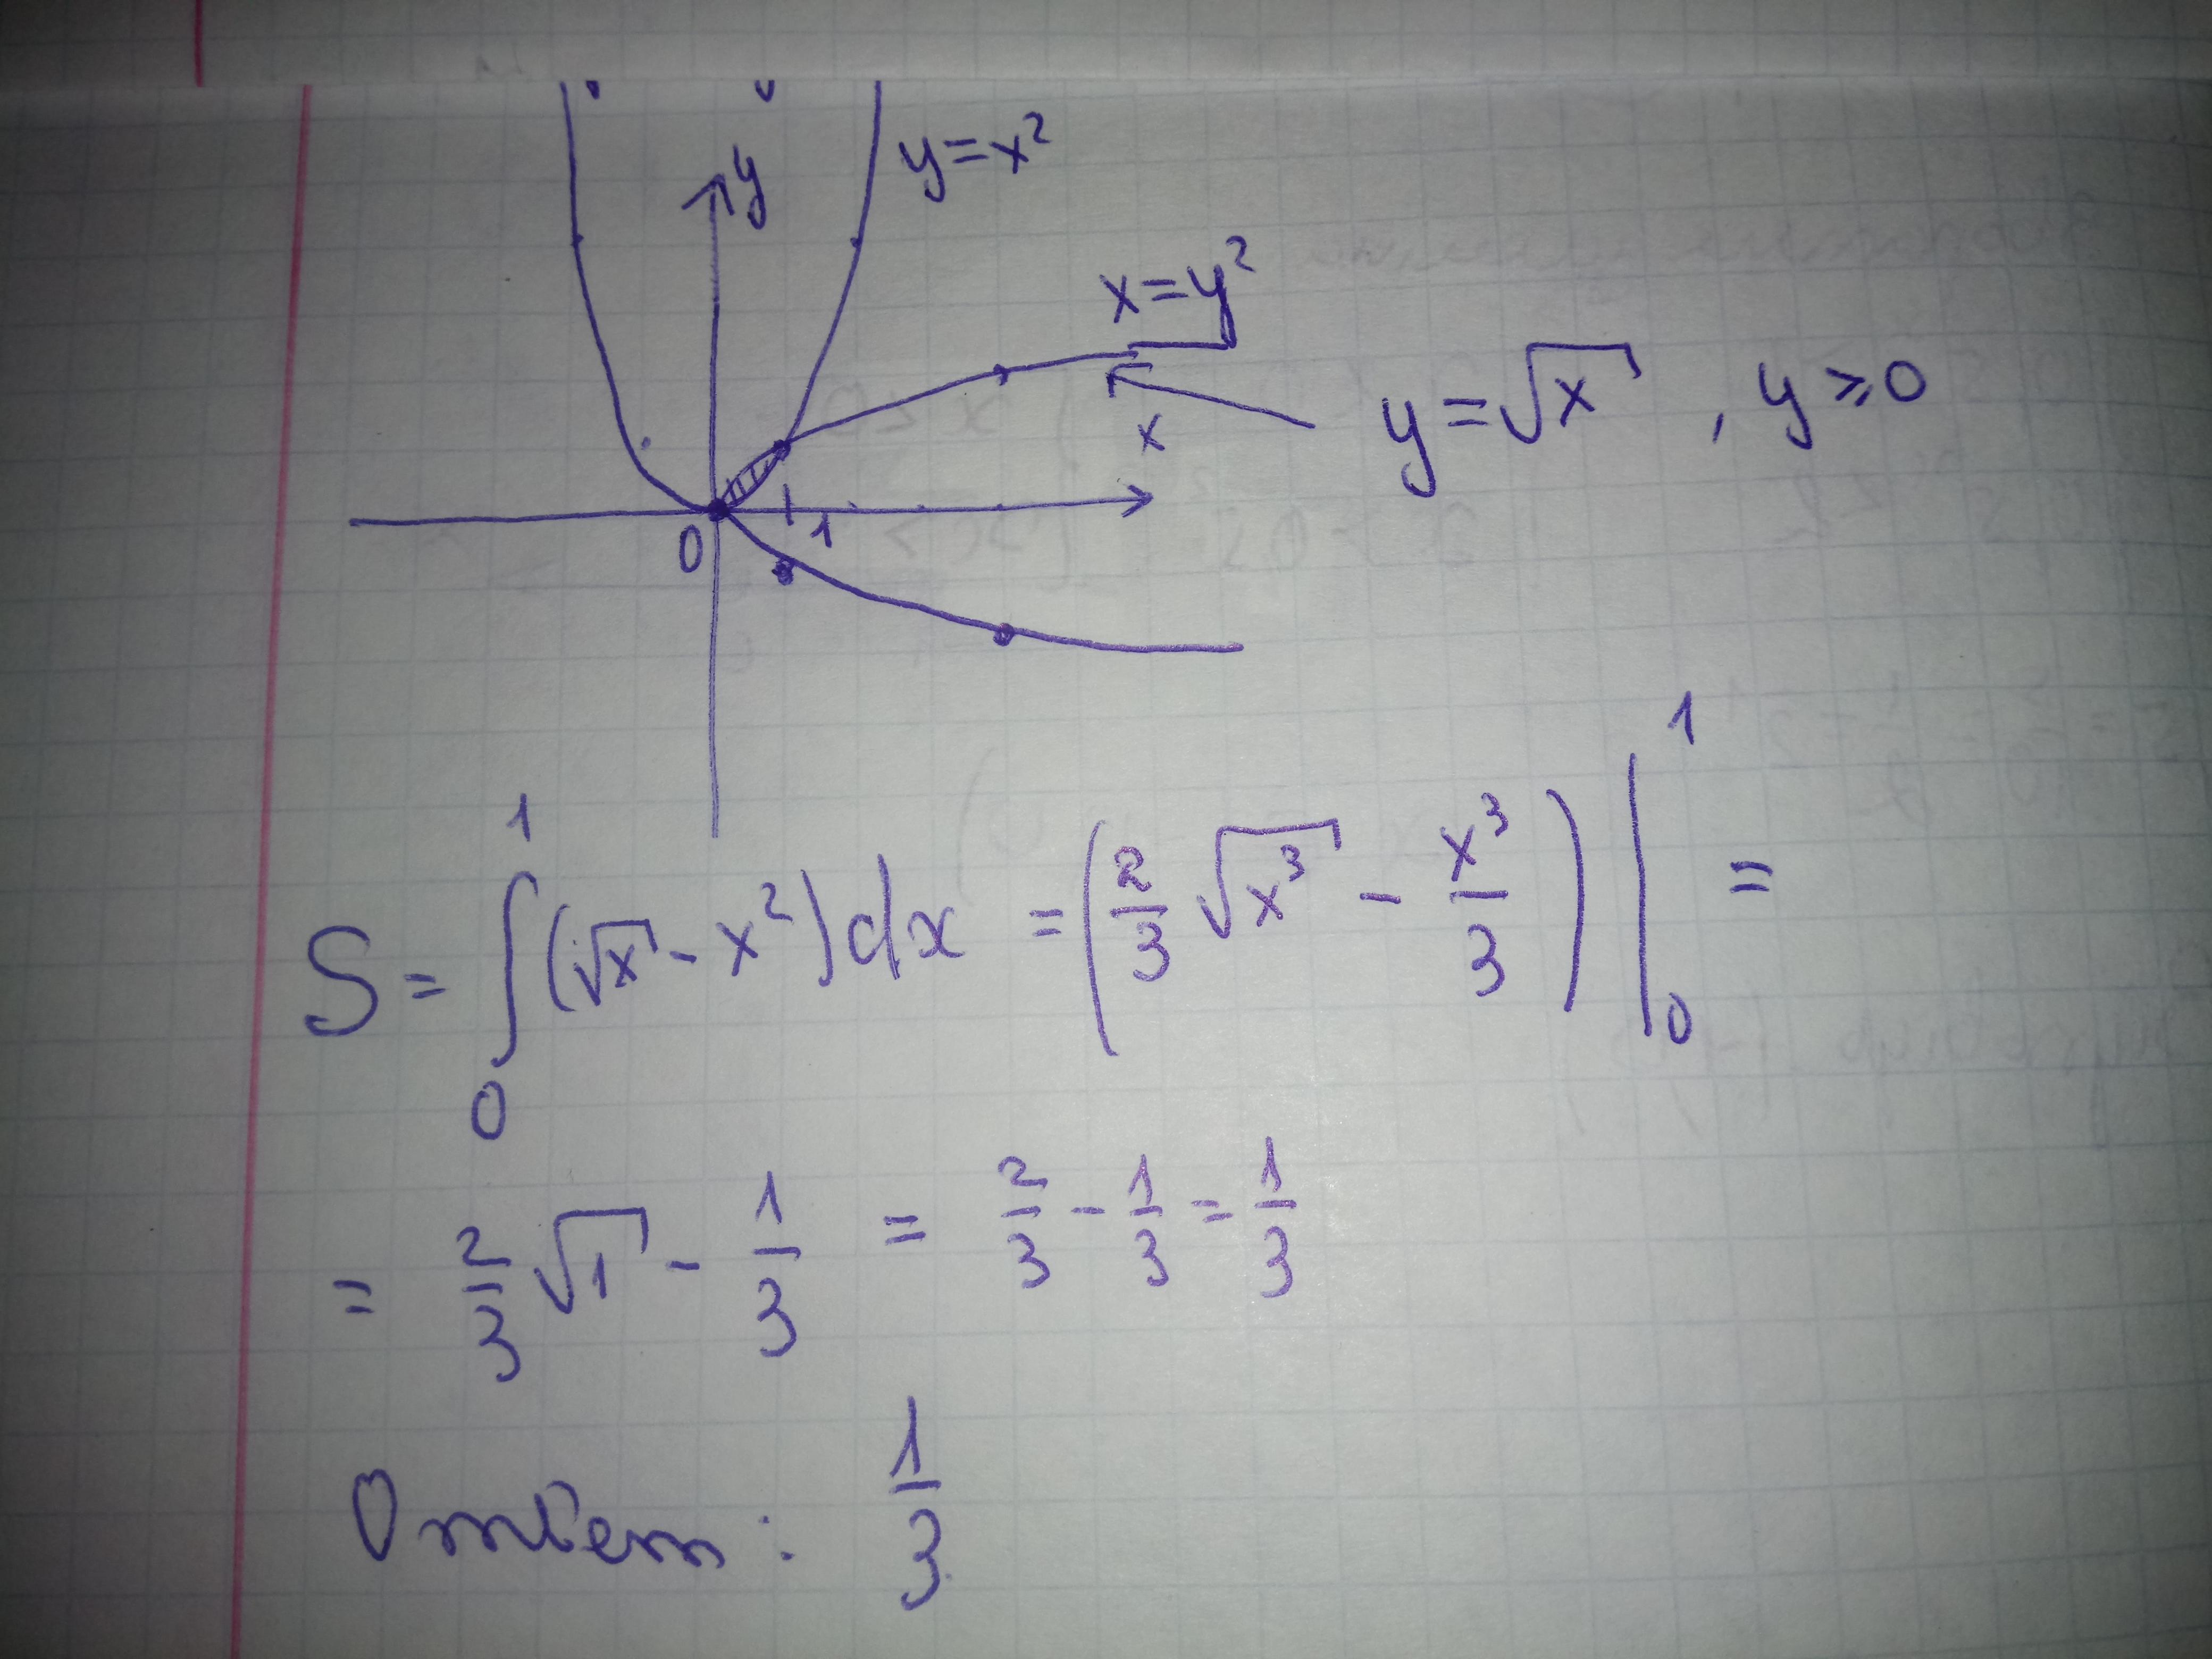 y
y=x²
x=y²
y=√x , y⩾0
x
0 1
S = ∫₀¹ (√x - x²) dx = (2/3 √x³ - x³/3) |₀¹ =
= 2/3 √1 - 1/3 = 2/3 - 1/3 = 1/3
Ответ: 1/3